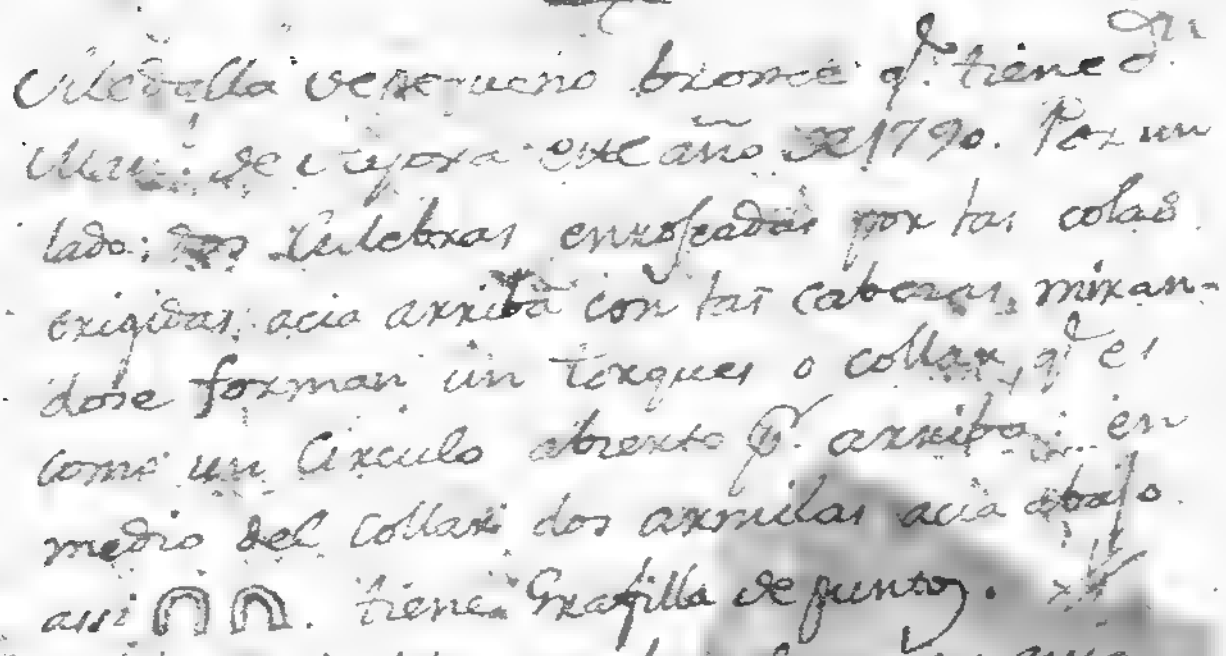 Medalla de pequeño bronce q.e tiene d.n
Man.l de Viejora este año de 1790. Por un
lado: dos Culebras enroscadas por las colas
erigidas, acia arriba con las cabezas, miran-
dose forman un torques o collar, q.e es
como un Circulo abierto p.r arriba: en
medio del collar dos armilas acia abajo.
assi tiene Grafilla de puntos.